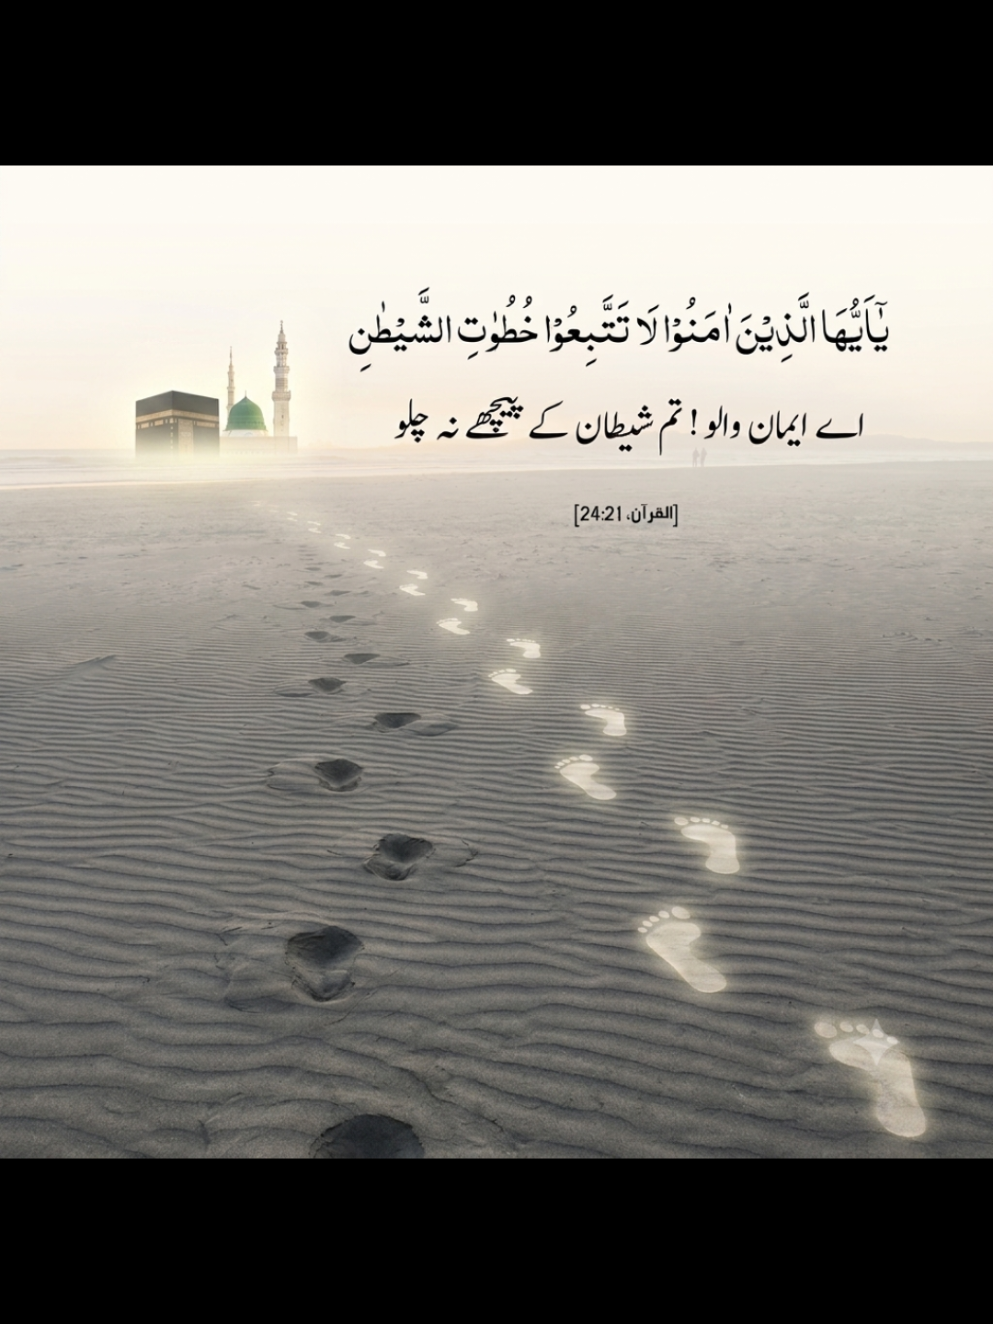 يٰۤاَيُّهَا الَّذِيْنَ اٰمَنُوْا لَا تَتَّبِعُوْا خُطُوٰتِ الشَّيْطٰنِ
اے ایمان والو! تم شیطان کے پیچھے نہ چلو
[القرآن، 24:21]